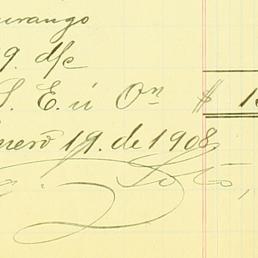 urango
9. d/c
S. E. ú On $ 15
enero 19. de 1908
Soto,